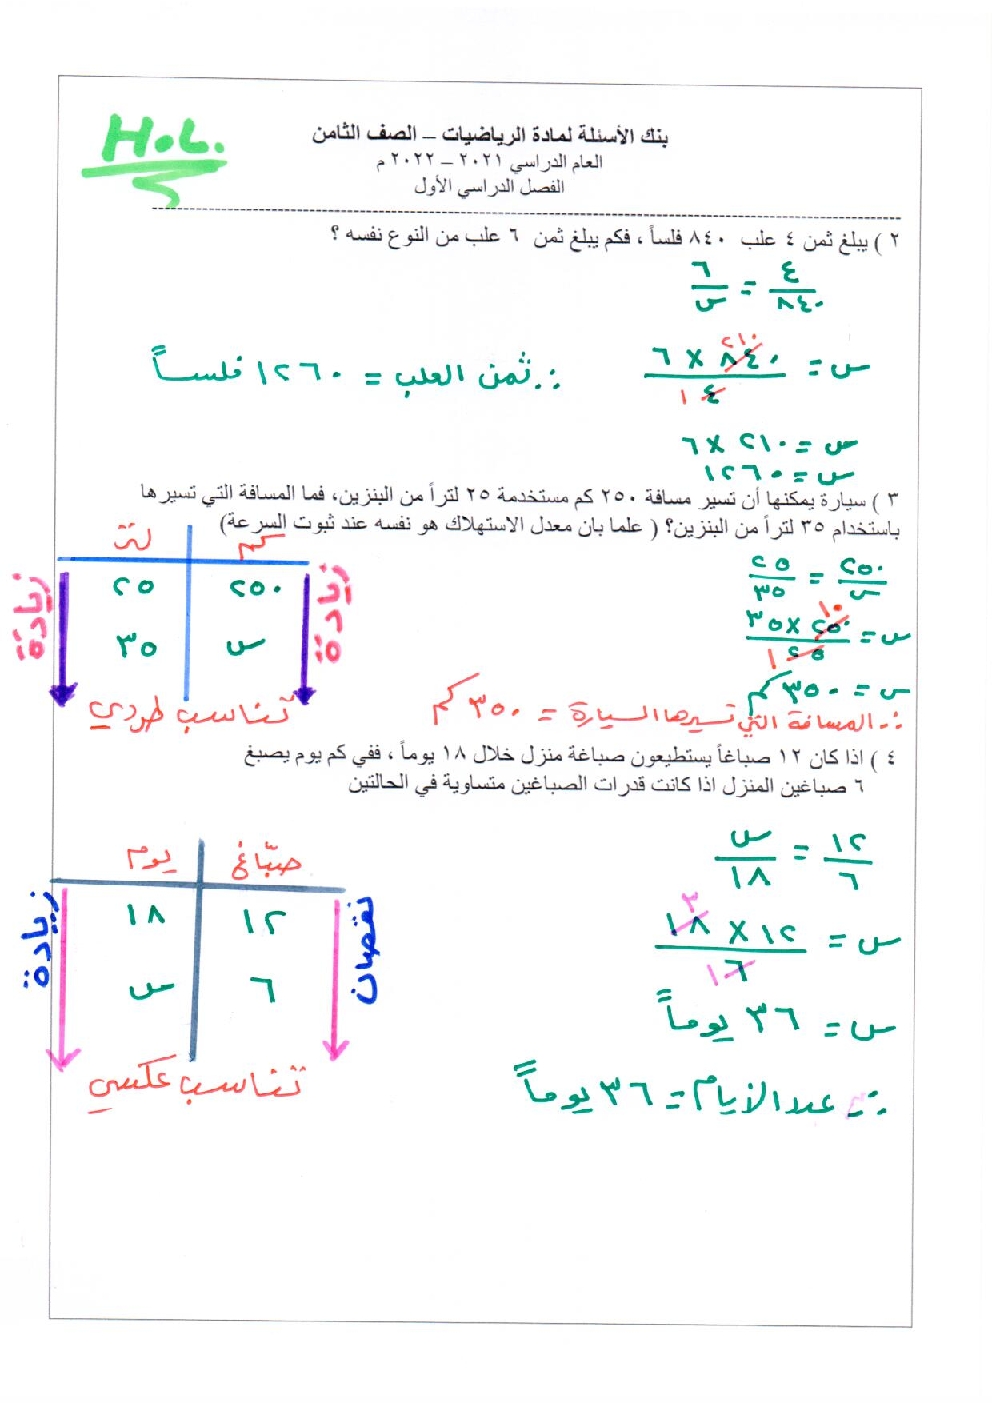 H.L.
بنك الأسئلة لمادة الرياضيات – الصف الثامن
العام الدراسي ٢٠٢١ – ٢٠٢٢ م
الفصل الدراسي الأول
٢ ) يبلغ ثمن ٤ علب ٨٤٠ فلساً ، فكم يبلغ ثمن ٦ علب من النوع نفسه ؟
٤/٨٤٠ = ٦/س
س = ٨٤٠ × ٦ / ٤
٢١٠
١
∴ ثمن العلب = ١٢٦٠ فلساً
س = ٢١٠ × ٦
س = ١٢٦٠
٣ ) سيارة يمكنها أن تسير مسافة ٢٥٠ كم مستخدمة ٢٥ لتراً من البنزين، فما المسافة التي تسيرها
باستخدام ٣٥ لتراً من البنزين؟ ( علما بان معدل الاستهلاك هو نفسه عند ثبوت السرعة)
كم لتر
٢٥٠ ٢٥
س ٣٥
زيادة
زيادة
تناسب طردي
٢٥٠/س = ٢٥/٣٥
س = ٢٥٠ × ٣٥ / ٢٥
١٠
١
س = ٣٥٠ كم
∴ المسافة التي تسيرها السيارة = ٣٥٠ كم
٤ ) اذا كان ١٢ صباغاً يستطيعون صباغة منزل خلال ١٨ يوماً ، ففي كم يوم يصبغ
٦ صباغين المنزل اذا كانت قدرات الصباغين متساوية في الحالتين
صبّاغ يوم
١٢ ١٨
٦ س
نقصان
زيادة
تناسب عكسي
١٢/٦ = س/١٨
س = ١٢ × ١٨ / ٦
٣
١
س = ٣٦ يوماً
∴ عدد الأيام = ٣٦ يوماً